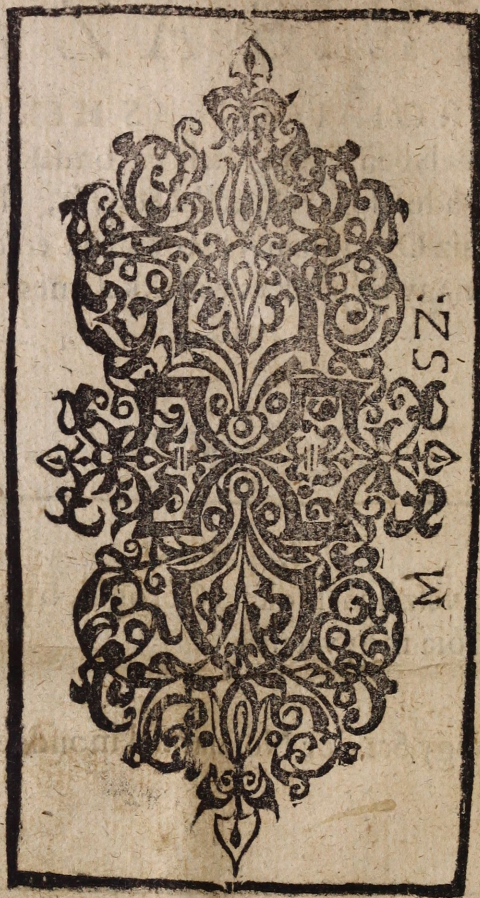 M SZ: